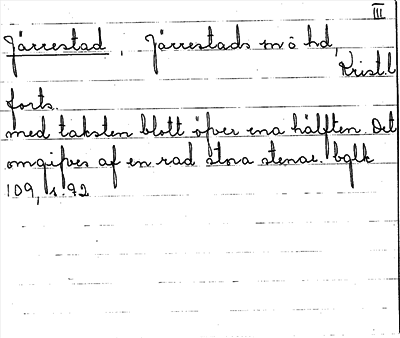 III
Järrestad. Järrestads m o hd,
Krist.l
forts.
med taksten blott öfver ena hälften. Det
omgifves af en rad stora stenar. bglk
109, s. 92